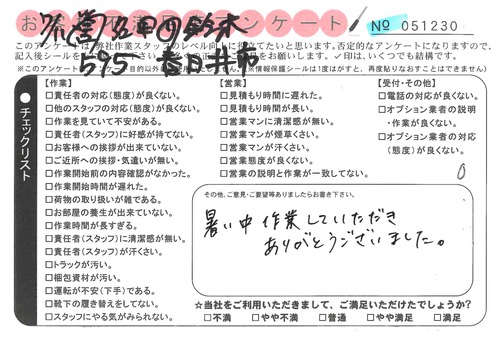 お客様 アンケート
No 051230
このアンケートは、弊社作業スタッフのレベル向上に役立てたいと思います。否定的なアンケートになりますので、
595 春日井市
※このアンケートは
チェックリスト
【作業】
□責任者の対応(態度)が良くない。
□他のスタッフの対応(態度)が良くない。
□作業を見ていて不安がある。
□責任者(スタッフ)に好感が持てない。
□お客様への挨拶が出来ていない。
□ご近所への挨拶・気遣いが無い。
□作業開始前の内容確認がなかった。
□作業開始時間が遅れた。
□荷物の取り扱いが雑である。
□お部屋の養生が出来ていない。
□作業時間が長すぎる。
□責任者(スタッフ)に清潔感が無い。
□責任者(スタッフ)が汗くさい。
□トラックが汚い。
□梱包資材が汚い。
□運転が不安(下手)である。
□靴下の履き替えをしてない。
□スタッフにやる気がみられない。
【営業】
□見積もり時間に遅れた。
□見積もり時間が長い。
□営業マンに清潔感が無い。
□営業マンが煙草くさい。
□営業マンが汗くさい。
□営業態度が良くない。
□営業の説明と作業が一致してない。
【受付・その他】
□電話の対応が良くない。
□オプション業者の説明
・作業が良くない。
□オプション業者の対応
(態度)が良くない。
0
その他、ご意見・ご要望等ありましたらお書き下さい。
暑い中 作業していただき
ありがとうございました。
☆当社をご利用いただきまして、ご満足いただけたでしょうか?
□不満 □やや不満 □普通 □やや満足 □満足